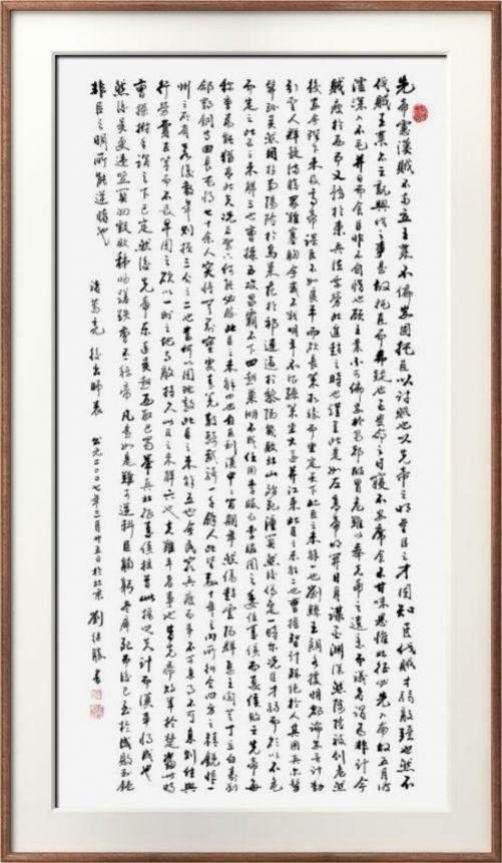 先帝慮漢賊不兩立王業不偏安固托臣以討賊也以先帝之明量臣之才固知臣伐賊才弱敵強也然不
伐賊王業亦亡孰與伐之是故托臣而弗疑也臣受命之日寢不安席食不甘味思惟北征必先入南故五月渡
瀘深入不毛并日而食臣非不自惜也顧王業不可偏安於蜀都故冒危難以奉先帝之遺意而議者謂為非計今
賊疲於西又務於東兵法乘勞此進趨之時也謹呈其事如左高帝明並日月謀臣淵深然陟險被創危然
後安今陛下未及高帝謀臣不如良平而欲長策取勝而坐定天下此臣之未解一也劉繇王朗各據州郡論安言計動
引聖人群疑滿腹眾難塞胸今歲不戰明年不征孫策坐大遂并江東此臣之未解二也曹操智計殊絕於人其用兵也仿佛
孫吳然困於南陽險於烏巢危於祁連逼於黎陽幾敗北山殆死潼關然後偽定一時爾況臣才弱而欲以不危
而定之此臣之未解三也曹操五攻昌霸不下四越巢湖不成任用李服而李服圖之委任夏侯而夏侯敗亡先帝每
稱操為能猶有此失況臣駑下何能必勝此臣之未解四也自臣到漢中中間期年然喪趙雲陽群馬玉閻芝丁立白壽劉
郃鄧銅等曲長屯將七十餘人突將無前賨叟青羌散騎武騎一千餘人此皆數十年之內所糾合四方之精銳非一
州之所有若復數年則損三分之二也當何以圖敵此臣之未解五也今民窮兵疲而事不可息事不可息則住與
行勞費正等而不及早圖之欲以一州之地與敵持久此臣之未解六也夫難平者事也昔先帝敗軍於楚當此時
曹操拊手謂天下已定然後先帝東連吳越西取巴蜀舉兵北征夏侯授首此操之失計而漢事將成也
然後吳更違盟關羽毀敗秭歸蹉跌曹丕稱帝凡事如是難可逆料臣鞠躬盡瘁死而後已至於成敗利鈍
非臣之明所能逆睹也
諸葛亮 後出師表 公元二〇〇七年三月廿五日於北京 劉 勝書